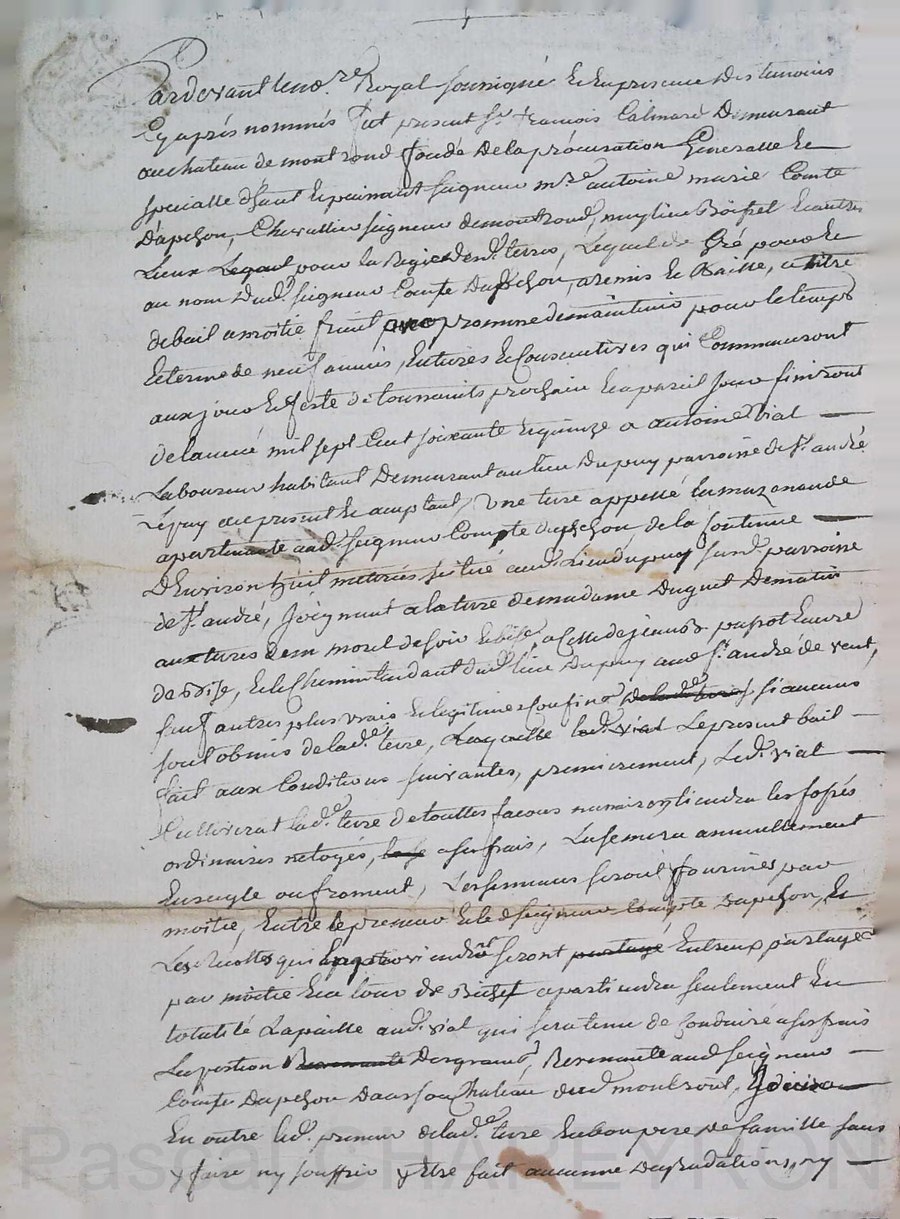 Pardevant le no.re Royal soussigné Et En presence Des temoins
Cy après nommés fut present Sr. francois Calmard Demeurant
au chateau de montrond fondé De la procuration Generalle Et
specialle d'haut Et puissant seigneur m.re antoine marie Comte
Dapchon, Chevallier seigneur de montrond, Boisset Et autres
Lieux Lequel pour la Regie desd. terres, Lequel de Gré pour Et
au nom dud. seigneur Comte Dapchon, a remis Et Baillé, a titre
de bail a moitié fruit avec promesse de maintenir pour le temps
Et terme de neuf années, Entieres Et Consecutives qui Commenceront
aux jour Et feste de toussaints prochain Et a pareil jour finiront
de lannée mil sept Cent soixante Et quinze a antoine Vial
Laboureur habitant Demeurant au lieu Dupuy parroisse de St. andré
Lepuy au present Et acceptant, Une terre appellé
apartenante aud. seigneur Compte dapchon, de la Contenue
D'Environ huit meterés situé aud. lieu dupuy susd. parroisse
de St. andré, Joignant a la terre de madame Duguet De matin
aux terres de mr. morel de soir Et bise, a Celle de
de bise, Et Le Chemin tendant dud. lieu Dupuy aud. St. andré de vent,
sauf autres plus vrais Et legitimes Confins de lad.e terre, si aucuns
sont obmis de lad.e terre, Laquelle led. vial Le present bail
fait aux Conditions suivantes, premierement, Led. vial
Cultivera lad.e terre de touttes facons necessaires, tiendra les fossés
ordinaires netoyés, a ses frais, Lasemera annuellement
En seigle ou froment, Les semences seront fournies par
moitié, Entre le preneur Et led. seigneur Compte Dapchon, Et
Les Recoltes qui En proviendront seront partagé Entreux partagée
par moitié Et a Cour de apartiendra seulement En
totalité La paille aud. vial qui sera tenu de Conduire a ses frais
La portion Revenante Des grains, Revenante aud. seigneur
Compte Dapchon Dans son Chateau dud. montrond,
En outre led. preneur de lad.e terre En bon pere de famille sans
y faire ny souffrir y Etre fait aucunne Degradations, ny
Pascal CHAPEYRON